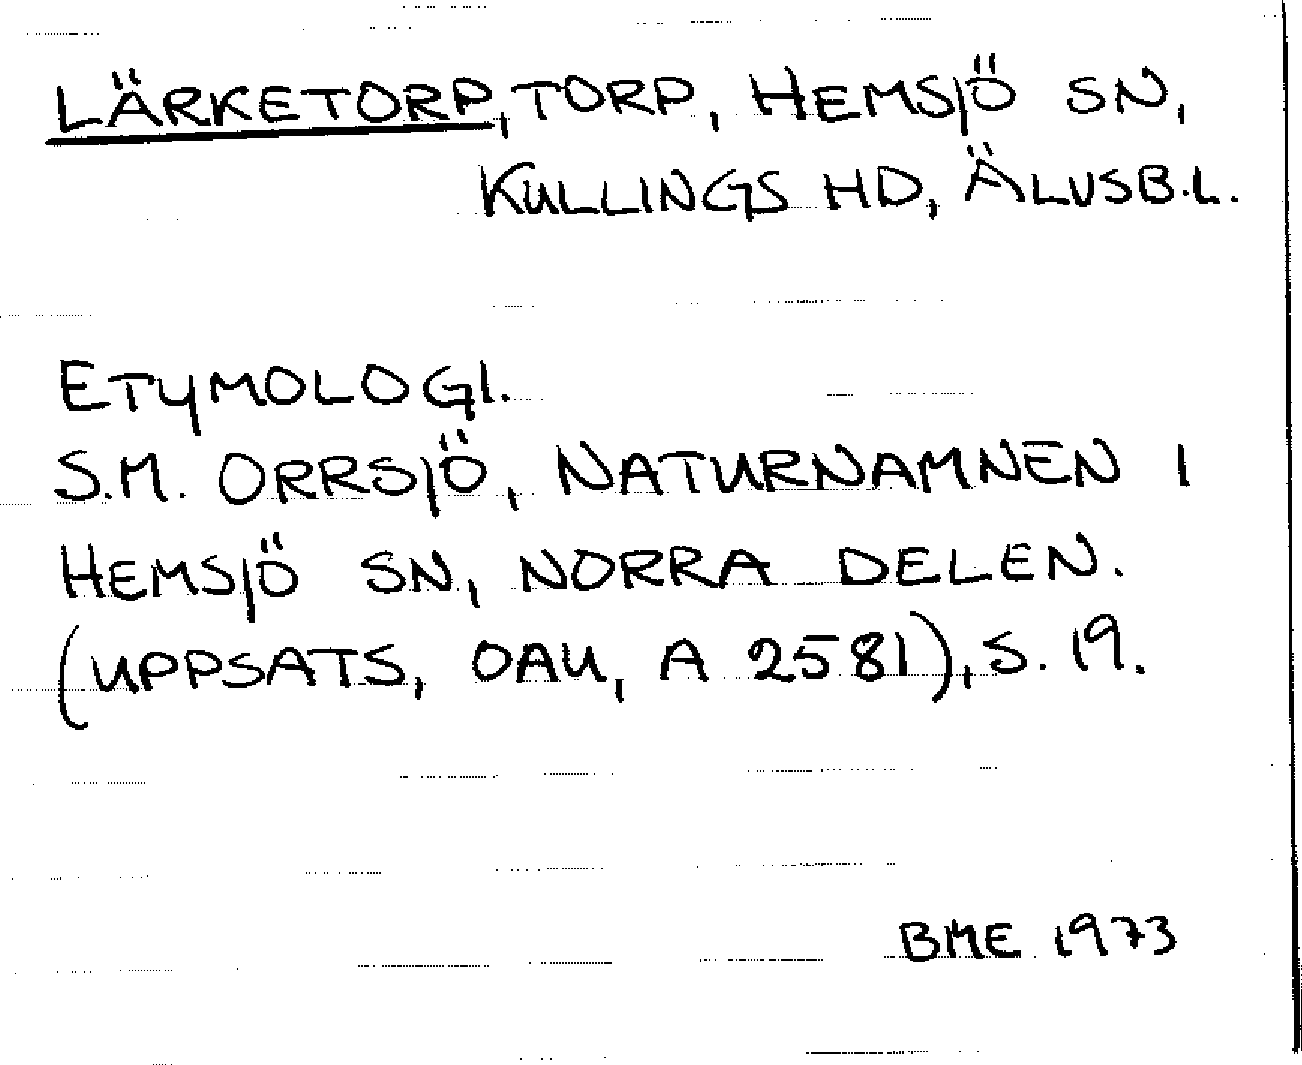 LÄRKETORP, TORP, HEMSJÖ SN,
KULLINGS HD, ÄLVSB.L.
ETYMOLOGI.
S.M. ORRSJÖ, NATURNAMNEN I
HEMSJÖ SN, NORRA DELEN.
(UPPSATS, OAU, A 2581), S. 19.
BME 1973